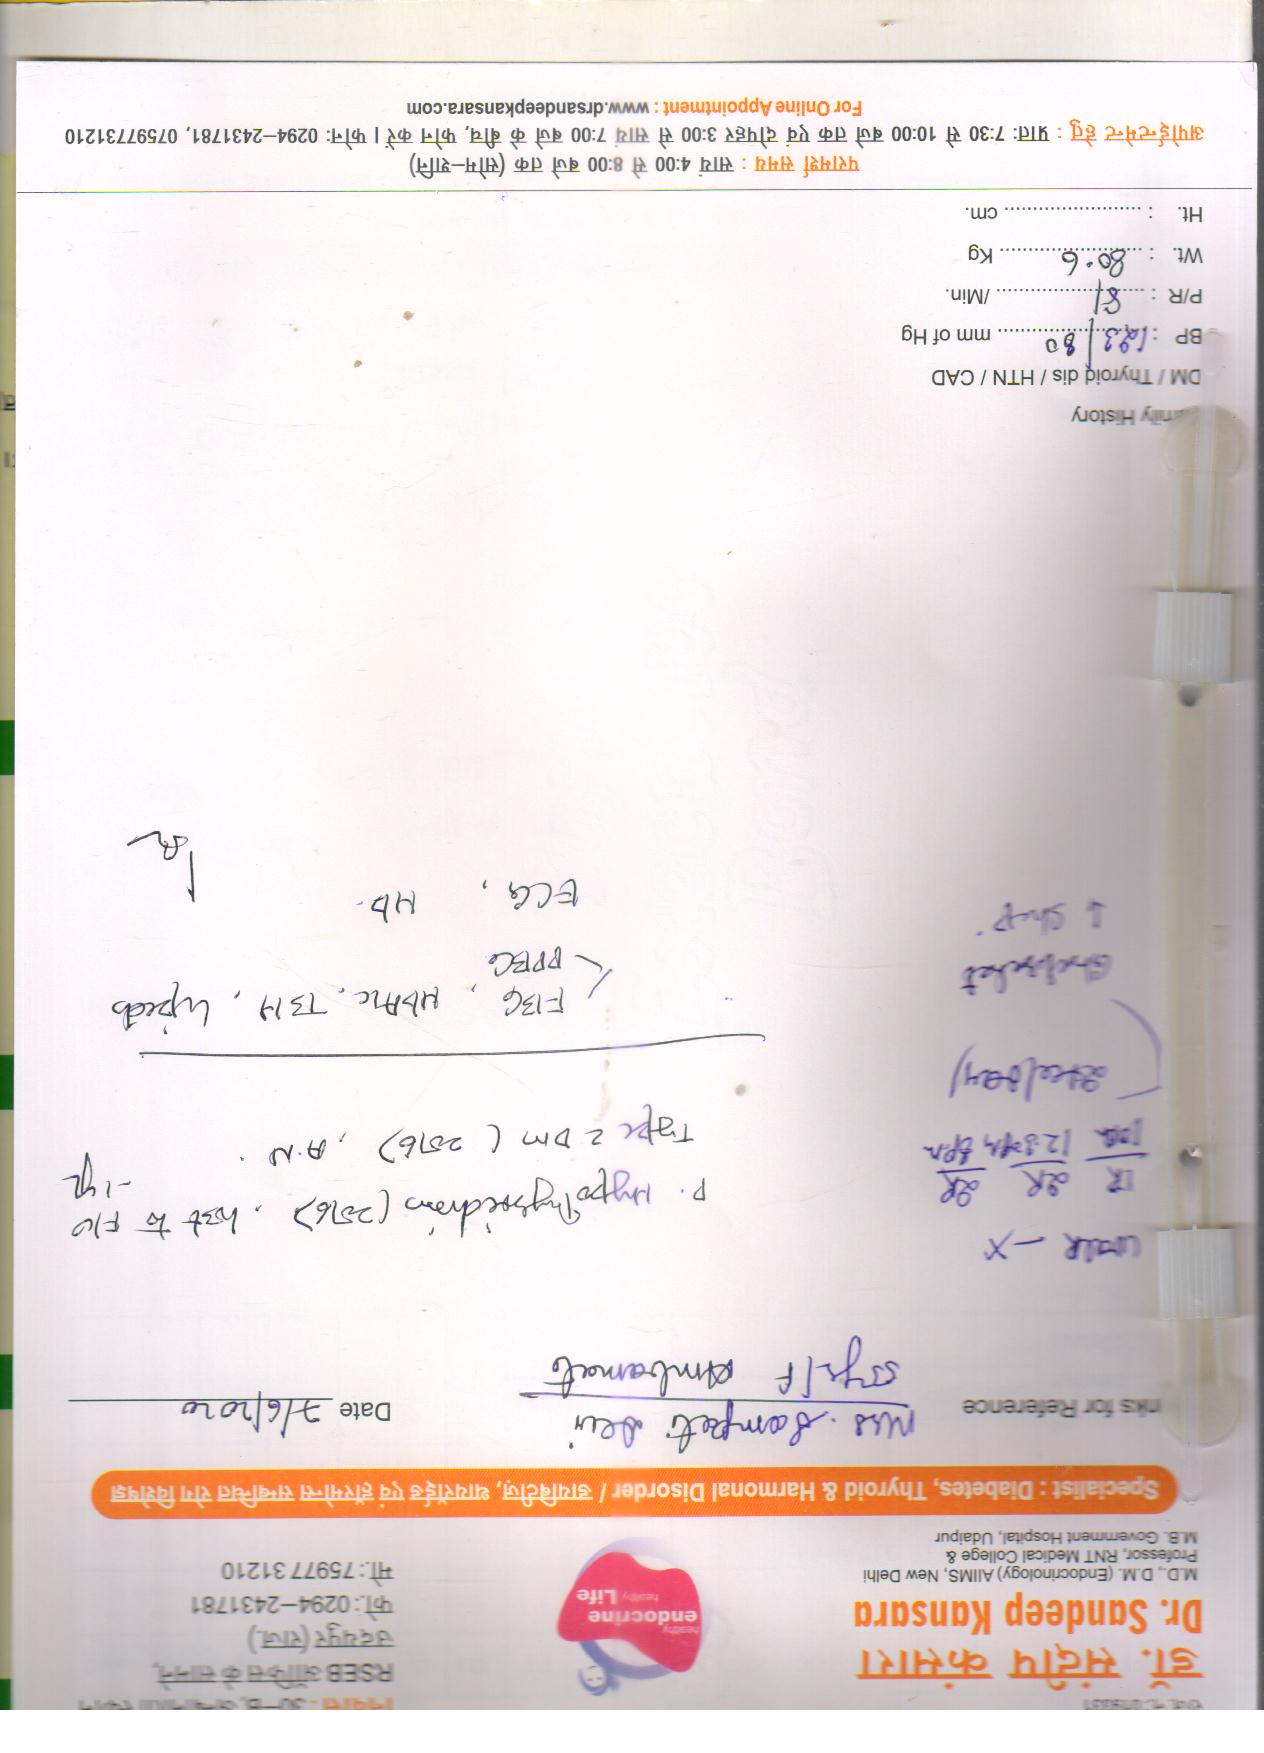 डॉ. संदीप कंसारा
Dr. Sandeep Kansara
M.D., D.M. (Endocrinology) AIIMS, New Delhi
Professor, RNT Medical College &
M.B. Government Hospital, Udaipur
healthy
endocrine
healthy
Life
RSEB ऑफिस के सामने,
उदयपुर (राज.)
फो.: 0294-2431781
मो.: 7597731210
Specialist : Diabetes, Thyroid & Harmonal Disorder / डायबिटीज़, थायरॉईड एवं हॉरमोन्स सम्बन्धित रोग विशेषज्ञ
nks for Reference
Mrs. Sampati Devi
Date 7/6/2020
55yrs/F Ambamata
walk - X
P. Hypothyroidism (2016), lost to F/U
-1 yr
Type 2 DM (2016), A.N.
FBG, HbA1c, TSH, Lipids
PPBG
ECG, Hb.
mily History
DM / Thyroid dis / HTN / CAD
BP : 123/80 mm of Hg
P/R : 81 /Min.
Wt. : 80.6 Kg
Ht. : cm.
परामर्श समय : सायं 4:00 से 8:00 बजे तक (सोम-शनि)
अपॉईन्टमेन्ट हेतु : प्रातः 7:30 से 10:00 बजे तक एवं दोपहर 3:00 से सायं 7:00 बजे के बीच, फोन करे । फोन: 0294-2431781, 07597731210
For Online Appointment : www.drsandeepkansara.com